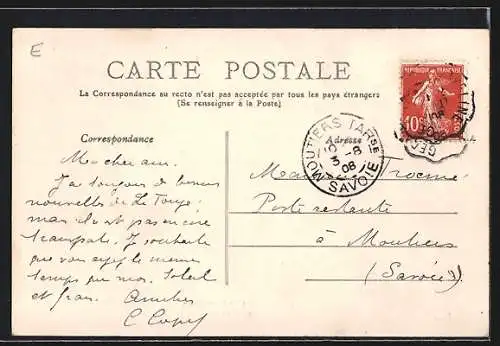 E
CARTE POSTALE
La Correspondance au recto n'est pas acceptée par tous les pays étrangers
(Se renseigner à la Poste)
RÉPUBLIQUE FRANÇAISE
10
Correspondance
Adresse
MOUTIERS TARSE
3 -8
08
SAVOIE
Mon cher ami.
J'ai toujours de bonnes
nouvelles de
mais il n'est pas encore
Je souhaite
que vous ayez le même
temps que moi. Soleil
et frais. Amitiés
Monsieur
Poste restante
à Moutiers
(Savoie)